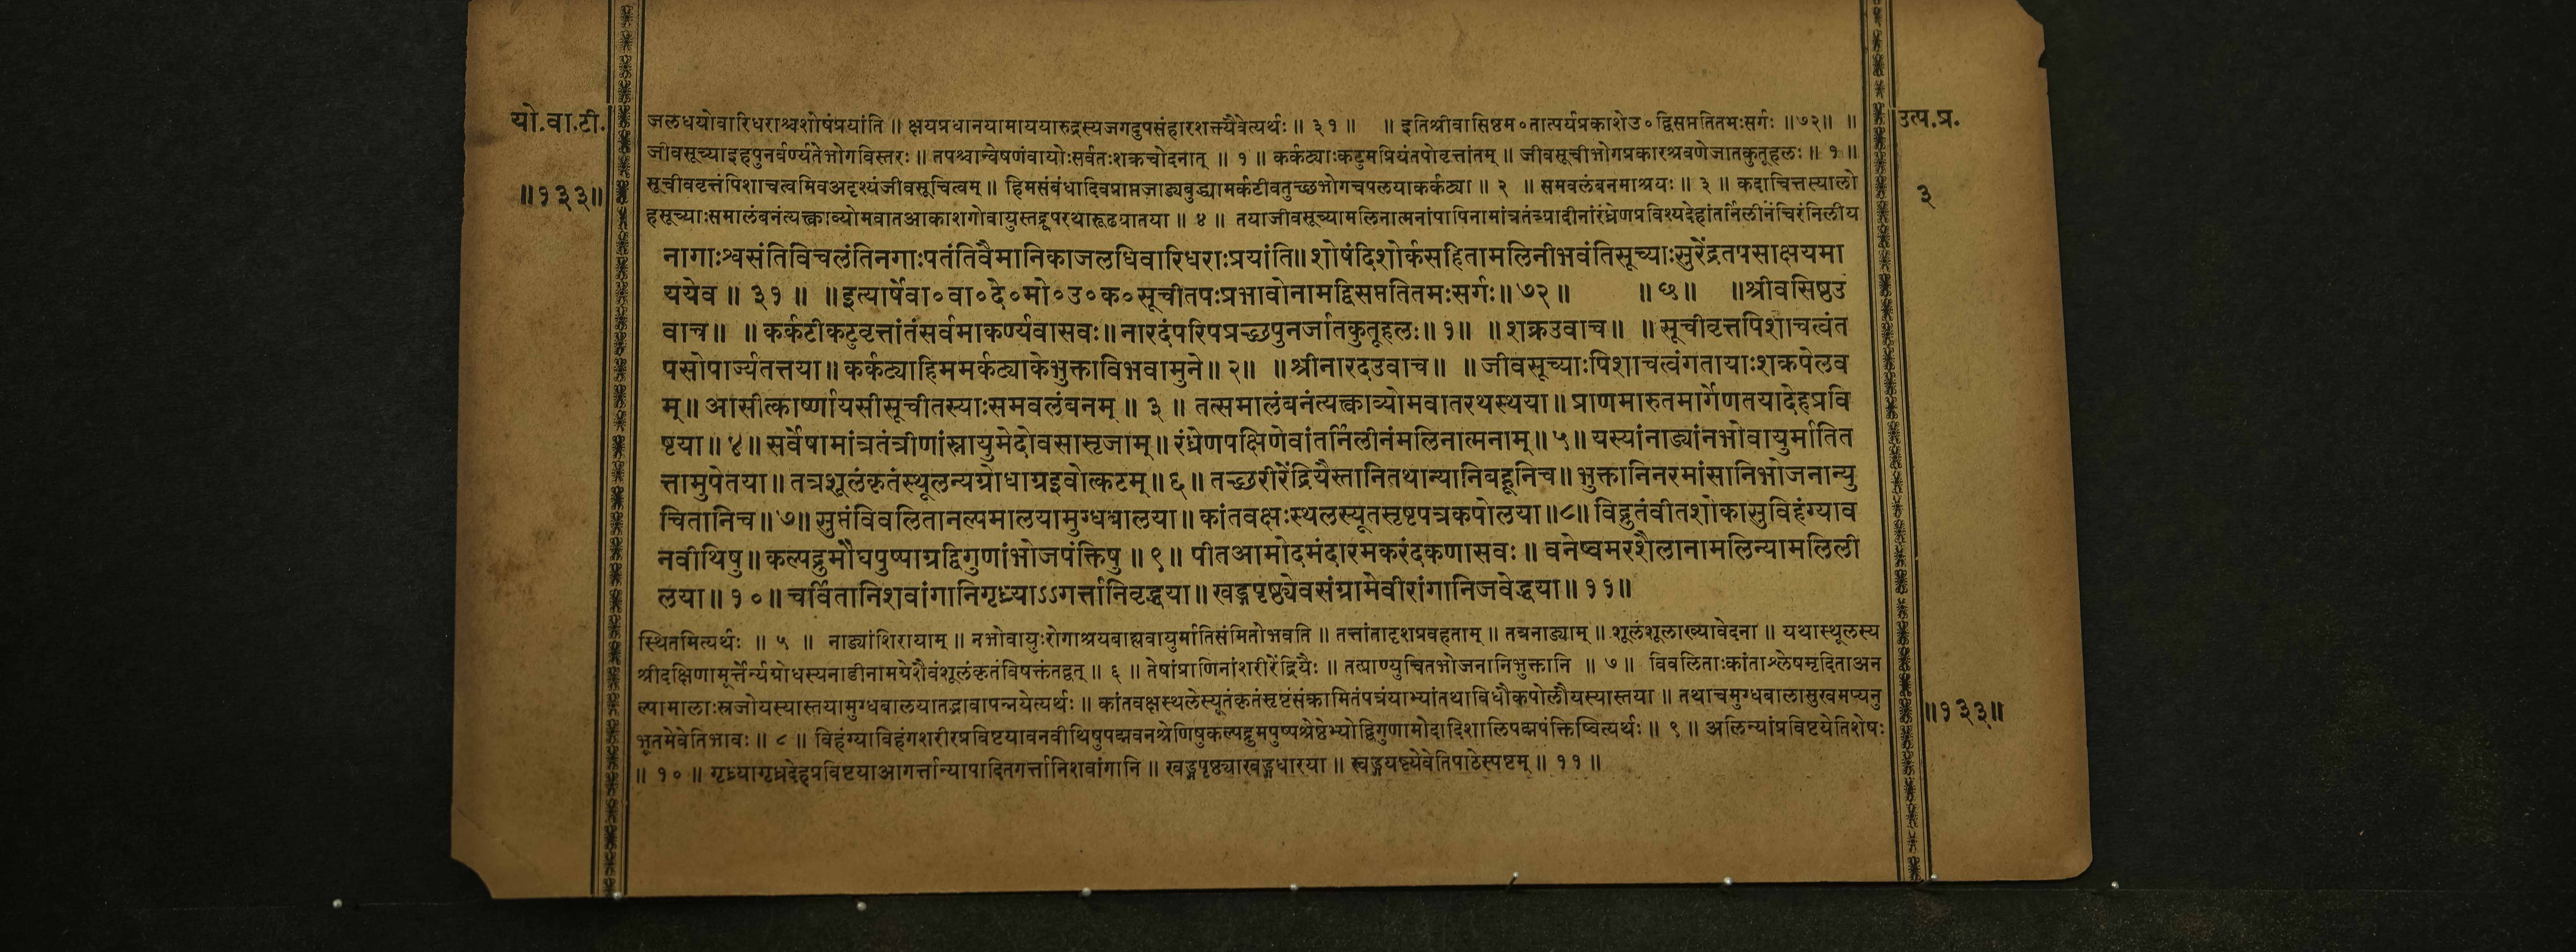 यो.वा.टी.
॥१३३॥
जलधयोवारिधराश्चशोषंप्रयांति ॥ क्षयप्रधानयामाययारुद्रस्यजगदुपसंहारशक्त्यैवेत्यर्थः ॥ ३१ ॥ ॥ इतिश्रीवासिष्ठम०तात्पर्यप्रकाशेउ०द्विसप्ततितमःसर्गः ॥७२॥ ॥
जीवसूच्याइहपुनर्वर्ण्यतेभोगविस्तरः ॥ तपश्चान्वेषणंवायोःसर्वतःशक्रचोदनात् ॥ १ ॥ कर्कट्याःकटुमप्रियंतपोवृत्तांतम् ॥ जीवसूचीभोगप्रकारश्रवणेजातकुतूहलः ॥ १ ॥
सूचीववृत्तंपिशाचत्वमिवअदृश्यंजीवसूचित्वम् ॥ हिमसंबंधादिवप्राप्तजाड्यबुद्ध्यामर्कटीवतुच्छभोगचपलयाकर्कट्या ॥ २ ॥ समवलंबनमाश्रयः ॥ ३ ॥ कदाचित्तस्यालो
हसूच्याःसमालंबनंत्यक्त्वाव्योमवातआकाशगोवायुस्तद्रूपरथारूढयातया ॥ ४ ॥ तयाजीवसूच्यामलिनात्मनांपापिनामांत्रतंत्र्यादीनांरंध्रेणप्रविश्यदेहांतर्निलीनंचिरंनिलीय
नागाःश्वसंतिविचलंतिनगाःपतंतिवैमानिकाजलधिवारिधराःप्रयांति॥शोषंदिशोर्कसहितामलिनीभवंतिसूच्याःसुरेंद्रतपसाक्षयमा
ययेव ॥ ३१ ॥ ॥इत्यार्षेवा०वा०दे०मो०उ०क०सूचीतपःप्रभावोनामद्विसप्ततितमःसर्गः॥७२॥ ॥ छ॥ ॥श्रीवसिष्ठउ
वाच॥ ॥कर्कटीकटुवृत्तांतंसर्वमाकर्ण्यवासवः॥नारदंपरिपप्रच्छपुनर्जातकुतूहलः॥१॥ ॥शक्रउवाच॥ ॥सूचीवृत्तपिशाचत्वंत
पसोपार्ज्यतत्तया॥कर्कट्याहिममर्कट्याकेभुक्ताविभवामुने॥२॥ ॥श्रीनारदउवाच॥ ॥जीवसूच्याःपिशाचत्वंगतायाःशक्रपेलव
म्॥आसीत्कार्ष्णायसीसूचीतस्याःसमवलंबनम् ॥ ३ ॥ तत्समालंबनंत्यक्त्वाव्योमवातरथस्थया॥प्राणमारुतमार्गेणतयादेहप्रवि
ष्टया॥४॥सर्वेषामांत्रतंत्रीणांस्नायुमेदोवसासृजाम्॥रंध्रेणपक्षिणेवांतर्निलीनंमलिनात्मनाम्॥५॥यस्यांनाड्यांनभोवायुर्मातित
त्तामुपेतया॥तत्रशूलंकृतंस्थूलन्यग्रोधाग्रइवोत्कटम्॥६॥तच्छरीरेंद्रियैस्तानितथान्यानिबहूनिच॥भुक्तानिनरमांसानिभोजनान्यु
चितानिच॥७॥सुप्तंविवलितानल्पमालयामुग्धबालया॥कांतवक्षःस्थलस्यूतसृष्टपत्रकपोलया॥८॥विद्रुतंवीतशोकासुविहंग्याव
नवीथिषु॥कल्पद्रुमौघपुष्पाग्रद्विगुणांभोजपंक्तिषु॥९॥पीतआमोदमंदारमकरंदकणासवः॥वनेष्वमरशैलानामलिन्यामलिली
लया॥१०॥चर्वितानिशवांगानिगृध्र्याऽऽगर्त्तानिवृद्धया॥खड्गपृष्ठ्येवसंग्रामेवीरांगानिजवेद्धया॥११॥
स्थितमित्यर्थः ॥ ५ ॥ नाड्यांशिरायाम् ॥ नभोवायुःरोगाश्रयबाह्यवायुर्मातिसंमितोभवति ॥ तत्तांतादृशप्रवहताम् ॥ तत्रनाड्याम् ॥ शूलंशूलाख्यावेदना ॥ यथास्थूलस्य
श्रीदक्षिणामूर्त्तेर्न्यग्रोधस्यनाडीनामग्रेशैवंशूलंकृतंविषक्तंतद्वत् ॥ ६ ॥ तेषांप्राणिनांशरीरेंद्रियैः ॥ तत्प्राण्युचितभोजनानिभुक्तानि ॥ ७ ॥ विवलिताःकांताश्लेषमृदिताअन
ल्पामालाःस्रजोयस्यास्तयामुग्धबालयातद्भावापन्नयेत्यर्थः ॥ कांतवक्षस्थलेस्यूतंकृतंसृष्टंसंक्रामितंपत्रंयाभ्यांतथाविधौकपोलौयस्यास्तया ॥ तथाचमुग्धबालासुखमप्यनु
भूतमेवेतिभावः ॥ ८ ॥ विहंग्याविहंगशरीरप्रविष्टयावनवीथिषुपद्मवनश्रेणिषुकल्पद्रुमपुष्पश्रेष्ठेभ्योद्विगुणामोदादिशालिपद्मपंक्तिष्वित्यर्थः ॥ ९ ॥ अलिन्यांप्रविष्टयेतिशेषः
॥ १० ॥ गृध्र्यागृध्रदेहप्रविष्टयाआगर्त्तान्यापादितगर्त्तानिशवांगानि ॥ खड्गपृष्ठ्याखड्गधारया ॥ खड्गयष्ट्येवेतिपाठेस्पष्टम् ॥ ११ ॥
उत्प.प्र.
३
॥१३३॥